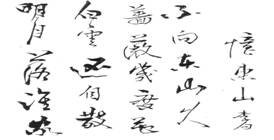 憶東山書
不向東山久
薔薇幾度花
白雲還自散
明月落誰家